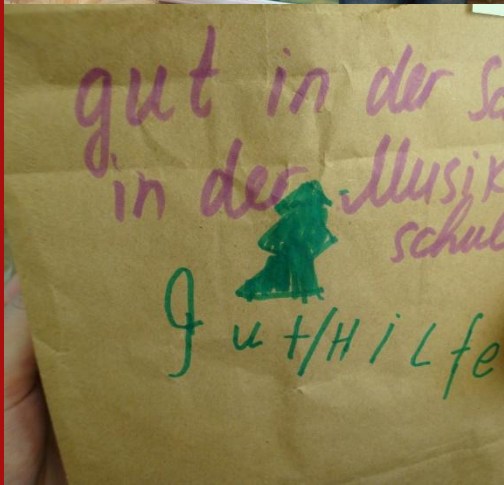 gut in der
in der Musik
schul
gut/HiLfe